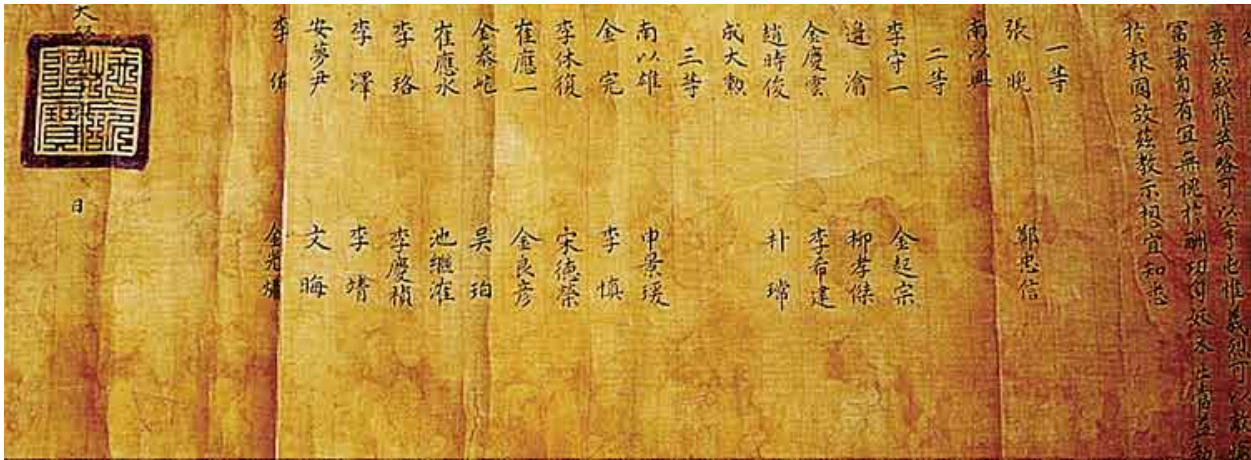 章於戱惟英略可以亨屯惟義烈可以敵愾
富貴自有宜無愧於酬功
於報國故玆敎示想宜知悉
一等
張晚 鄭忠信
南以興
二等
李守一 金起宗
邊潝 柳孝傑
金慶雲 李希建
趙時俊 朴瑺
成大勲
三等
南以雄 申景瑗
金完 李愼
李休復 宋德榮
崔應一 金良彦
金泰屹 吳珀
崔應水 池繼漼
李珞 李慶禎
李澤 李靖
安夢尹 文晦
李佑 金光熽
天啓 日